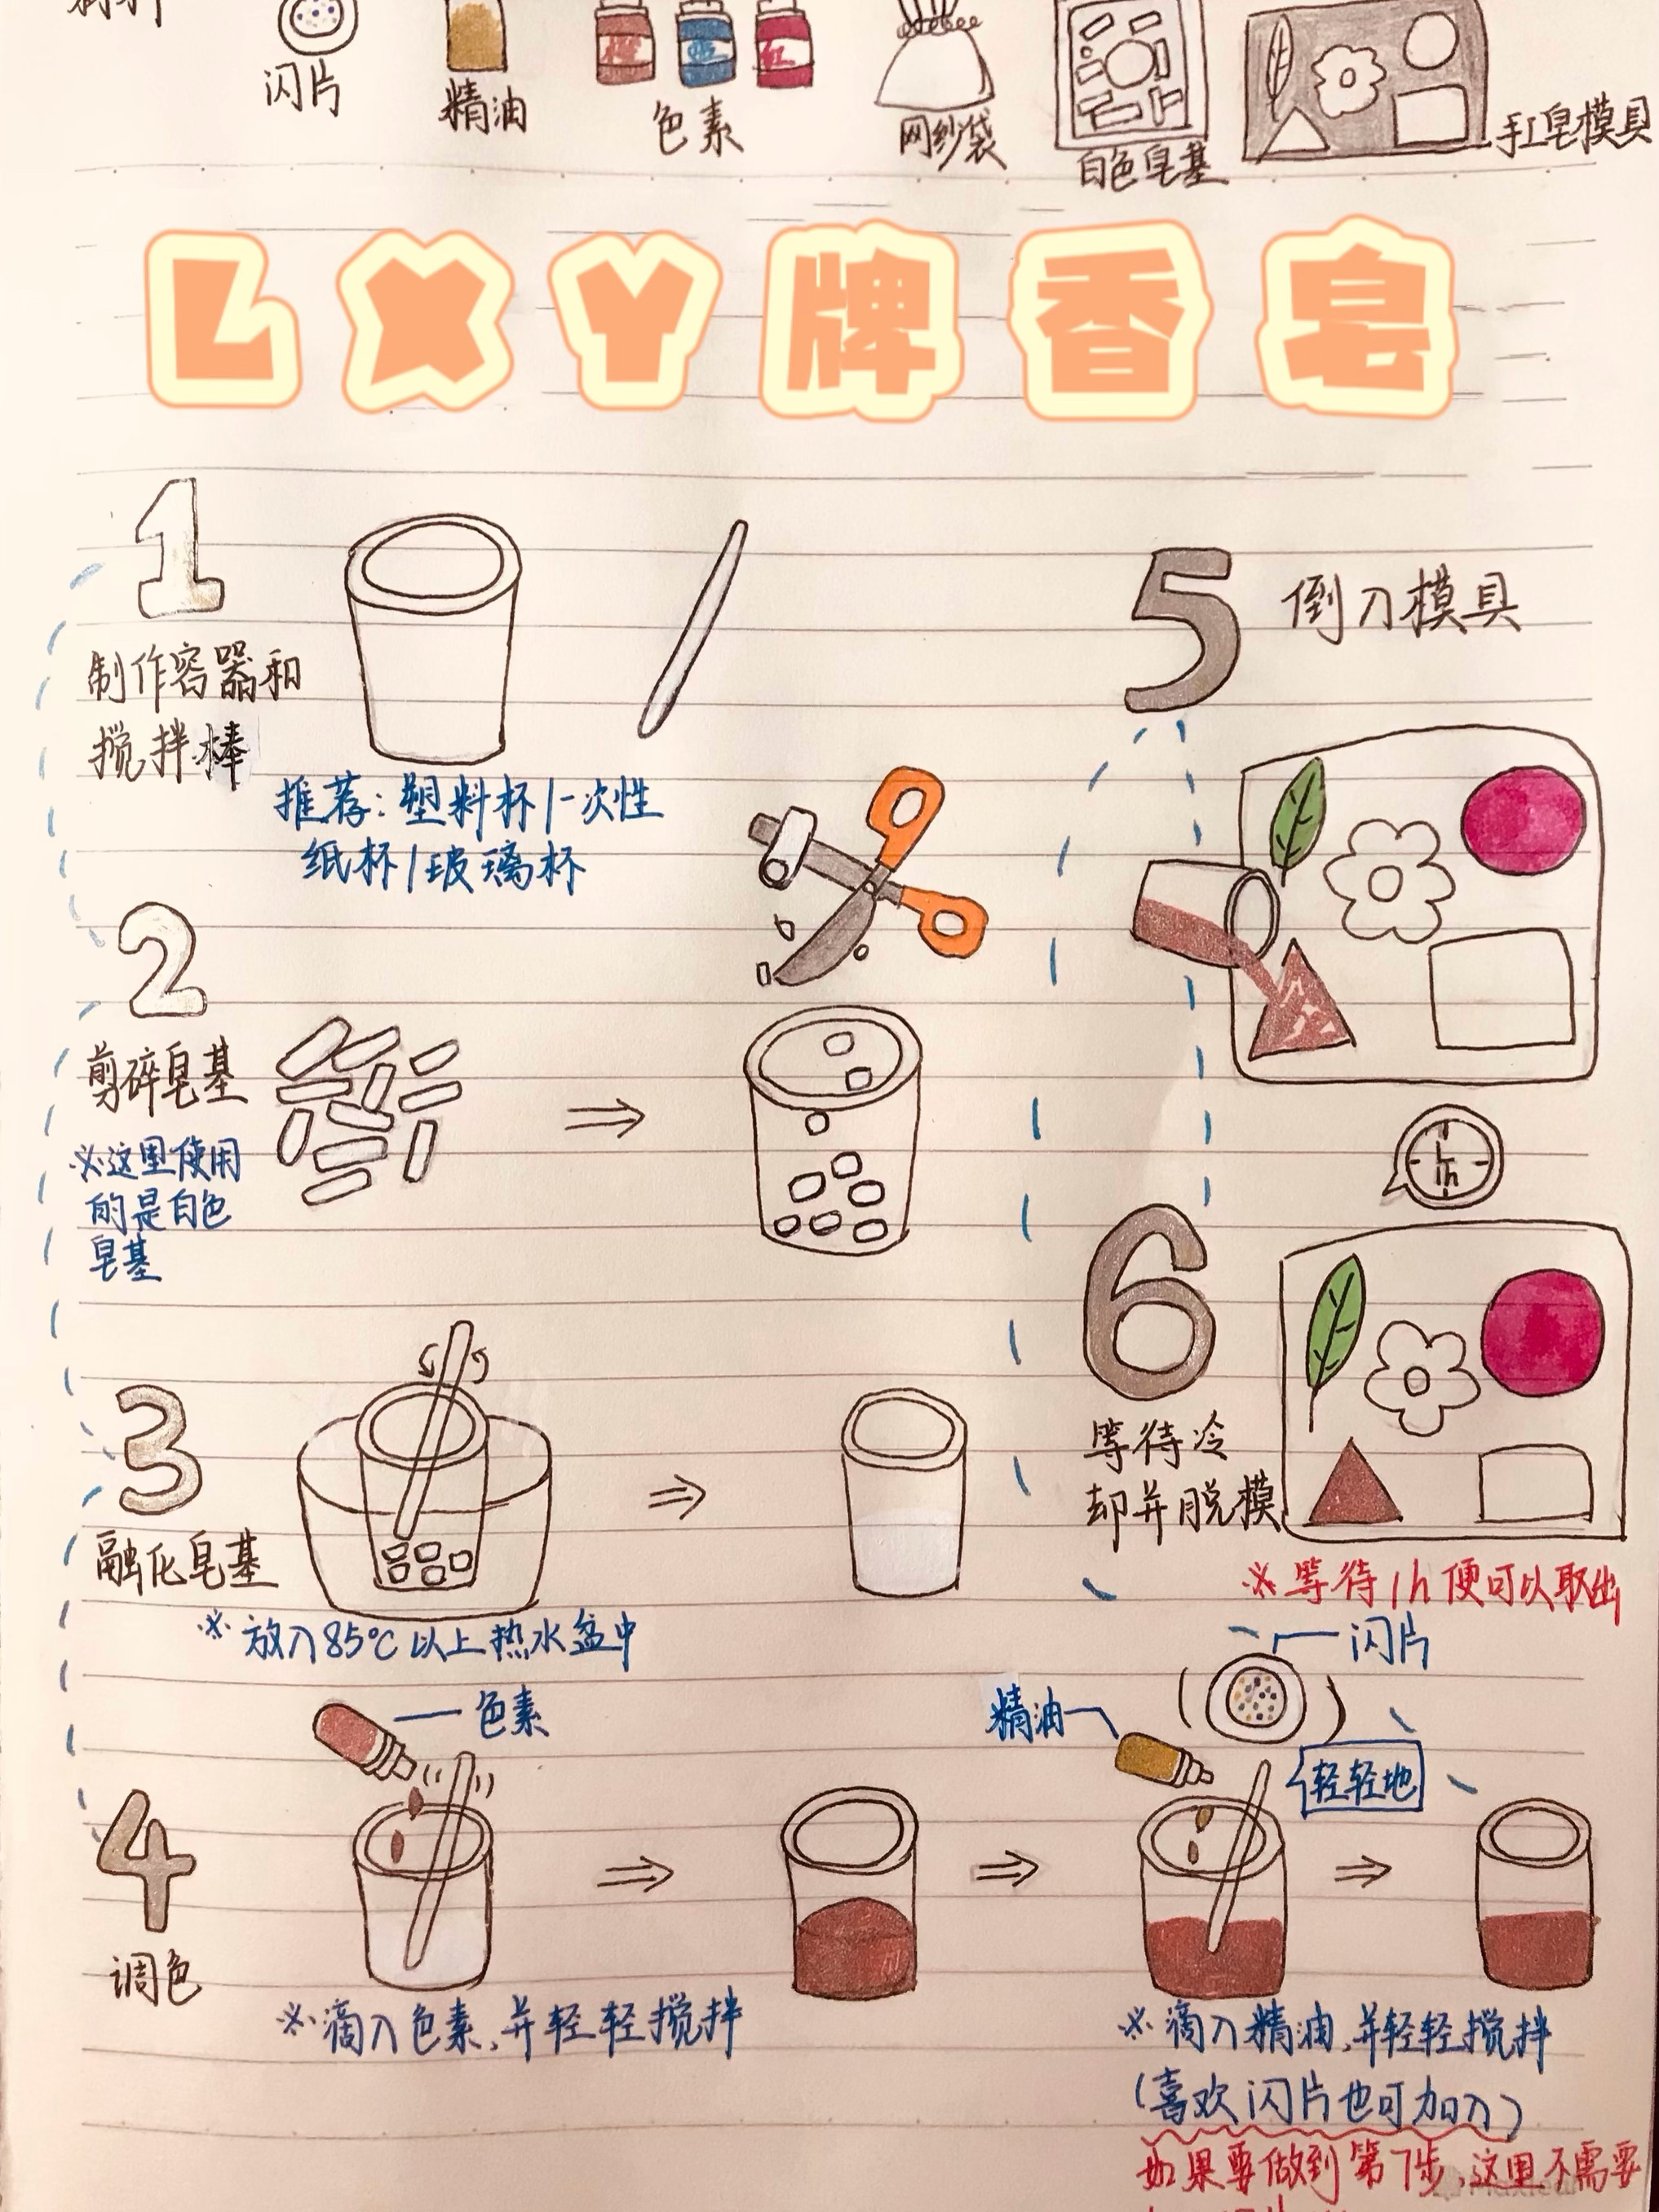 材料
闪片
精油
橙
蓝
红
色素
网纱袋
白色皂基
手工皂模具
LXY牌香皂
1
制作容器和
搅拌棒
推荐：塑料杯/一次性
纸杯/玻璃杯
2
剪碎皂基
※这里使用
的是白色
皂基
3
融化皂基
※放入85℃以上热水盆中
4
调色
色素
※滴入色素，并轻轻搅拌
精油
闪片
轻轻地
※滴入精油，并轻轻搅拌
(喜欢闪片也可加入)
如果要做到第7步，这里不需要
5
倒入模具
1h
6
等待冷
却并脱模
※等待1h便可以取出